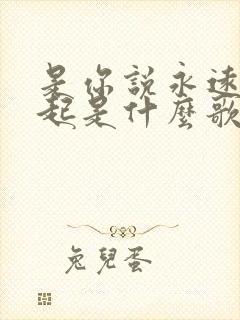 是你說永遠
起是什麼歌
兔兒蛋